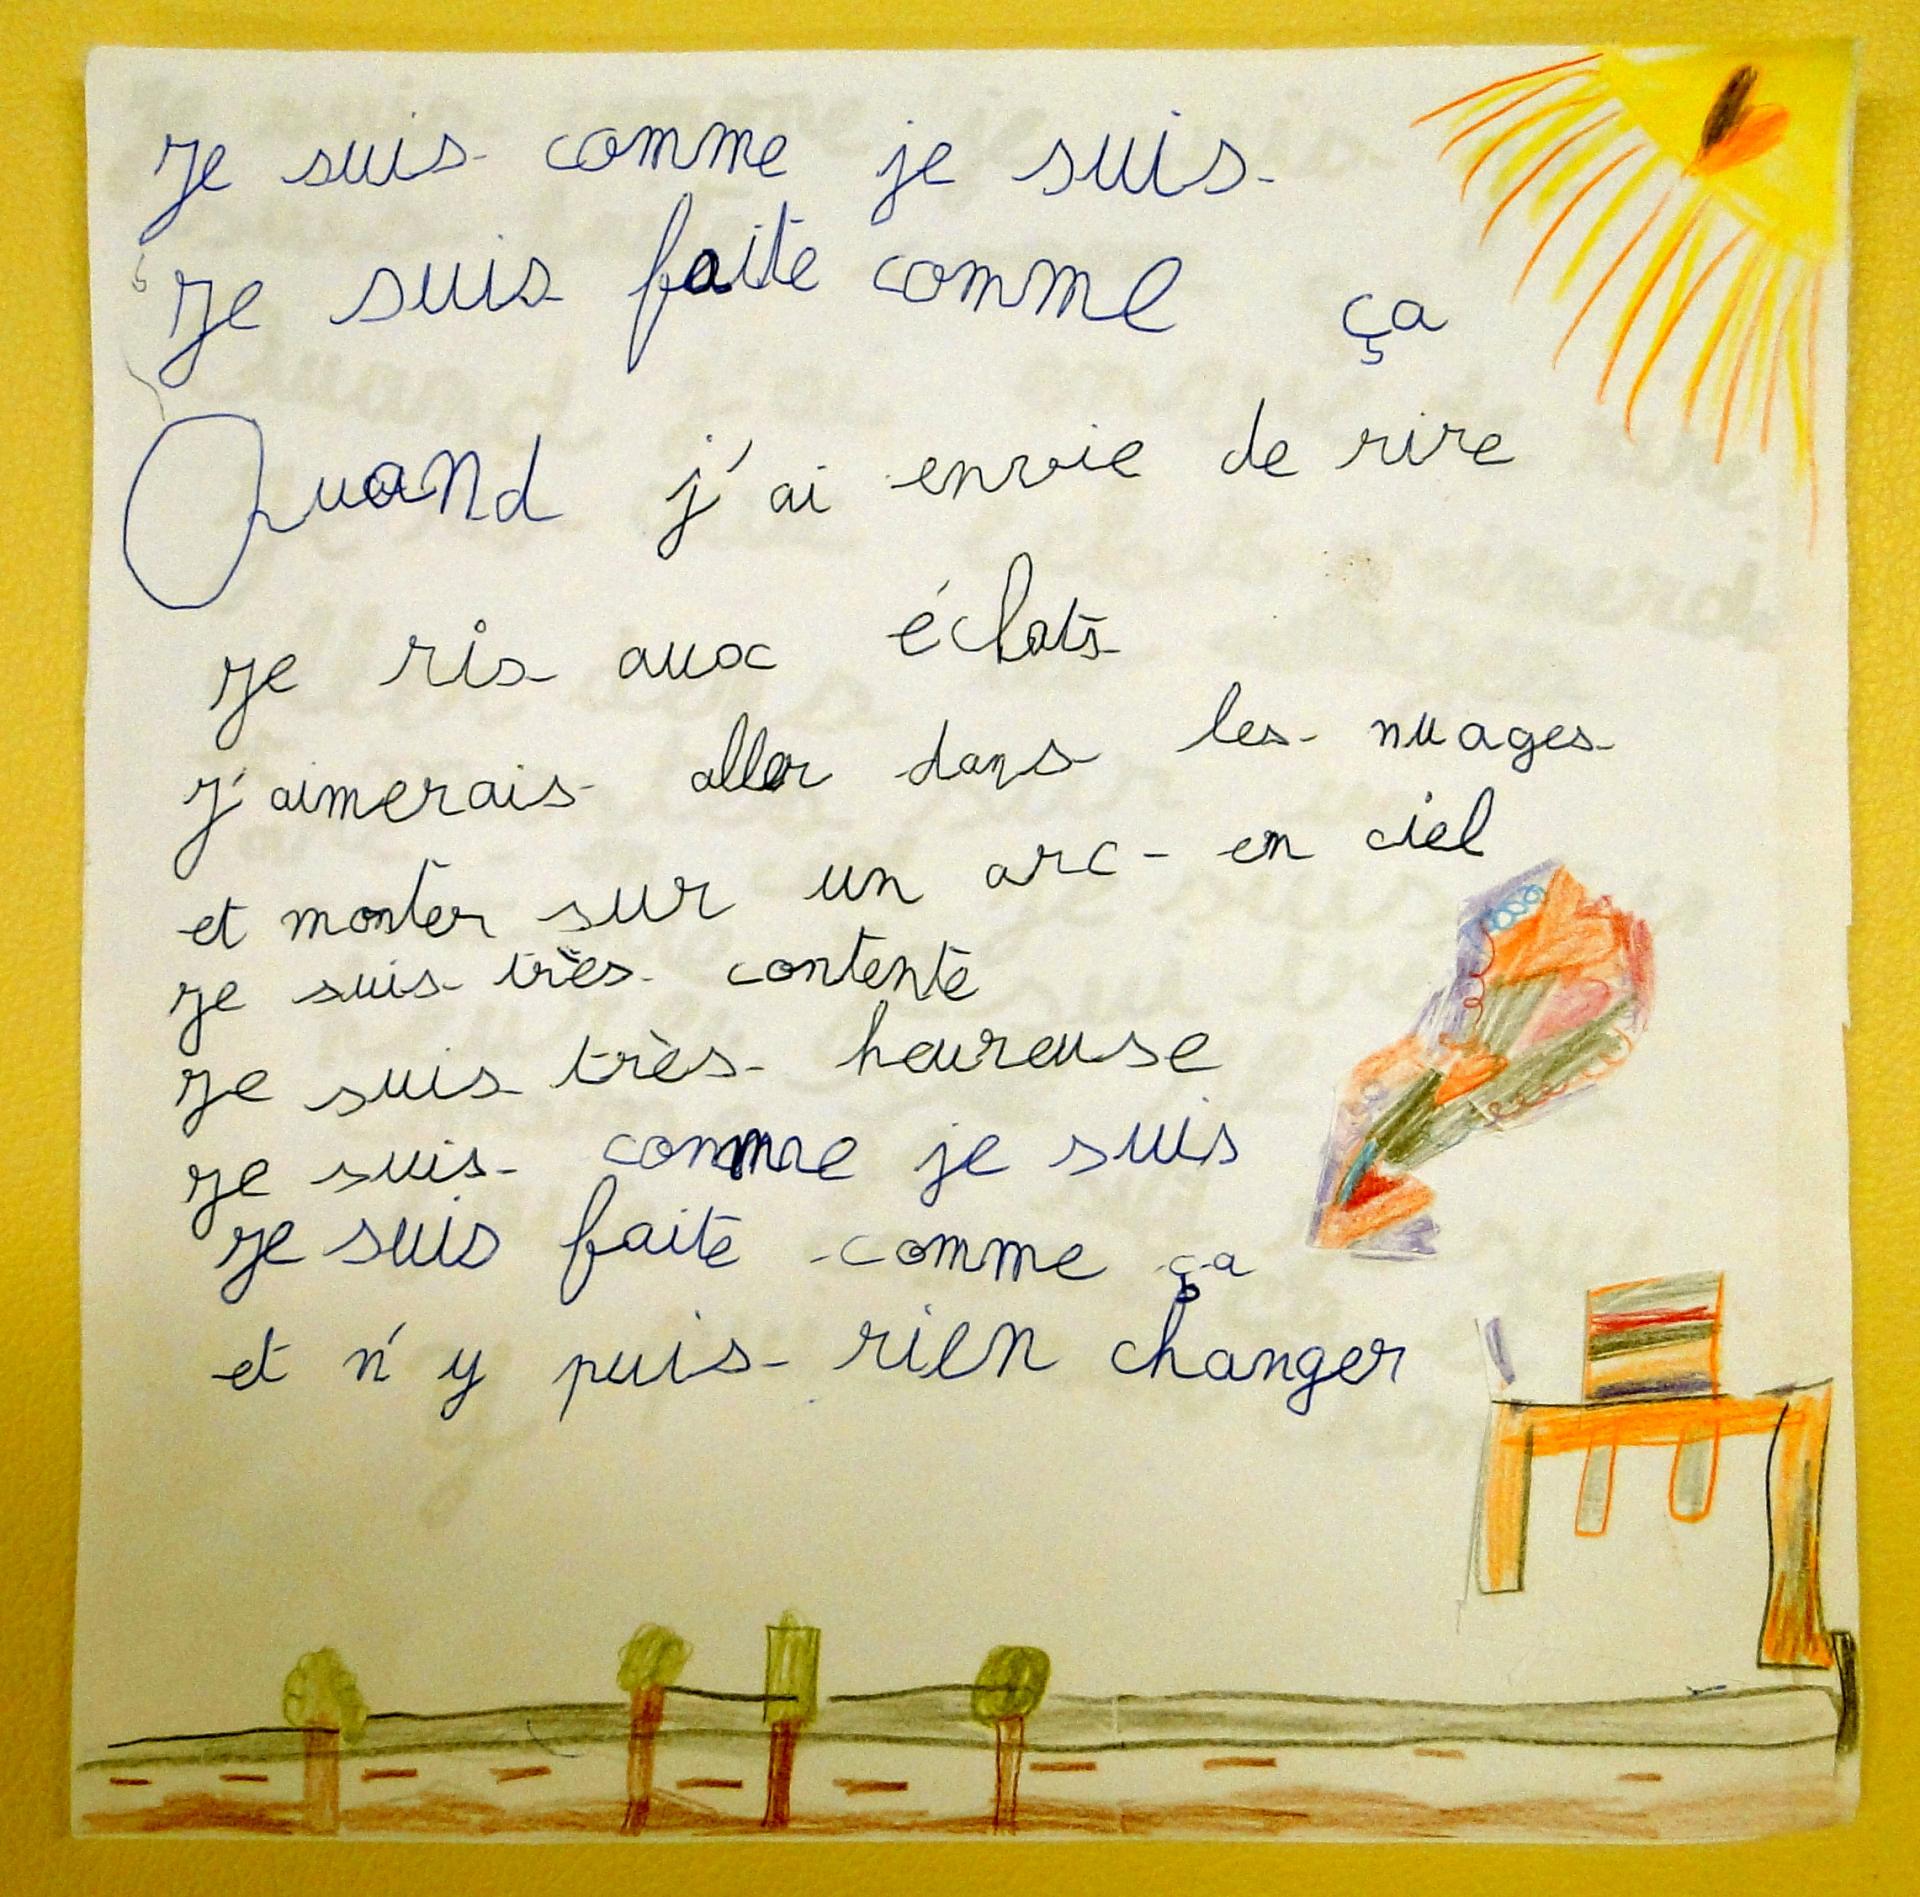 Je suis comme je suis
Je suis faite comme ça
Quand j'ai envie de rire
Je ris aux éclats
J'aimerais aller dans les nuages
et monter sur un arc-en ciel
Je suis très contente
Je suis très heureuse
Je suis comme je suis
Je suis faite comme ça
et n'y puis rien changer